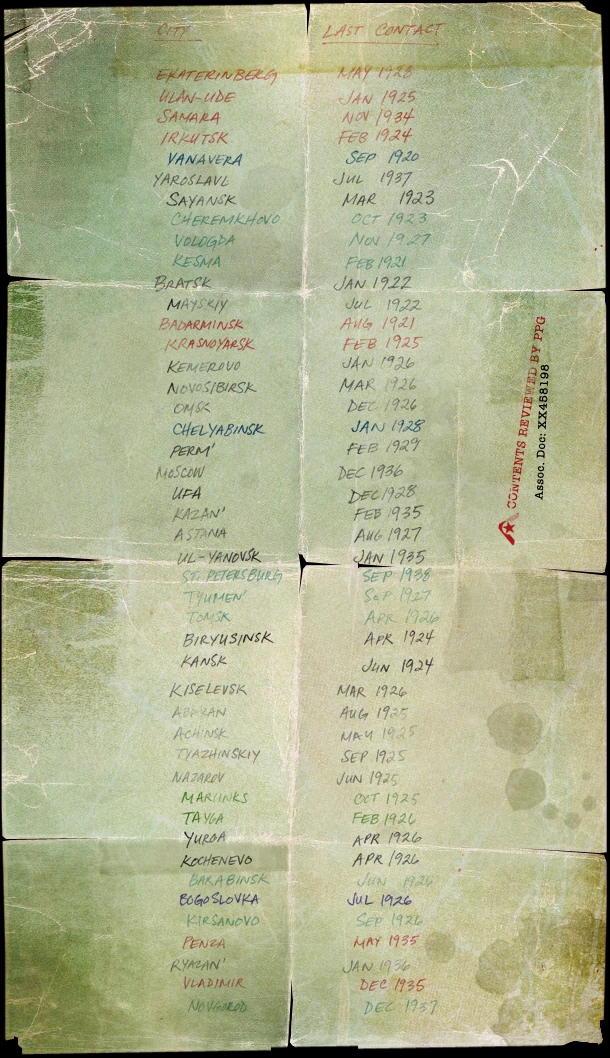 CITY LAST CONTACT
EKATERINBERG MAY 1928
ULAN-UDE JAN 1925
SAMARA NOV 1934
IRKUTSK FEB 1924
VANAVERA SEP 1920
YAROSLAVL JUL 1937
SAYANSK MAR 1923
CHEREMKHOVO OCT 1923
VOLOGDA NOV 1927
KESMA FEB 1921
BRATSK JAN 1922
MAYSKIY JUL 1922
BADARMINSK AUG 1921
KRASNOYARSK FEB 1925
KEMEROVO JAN 1926
NOVOSIBIRSK MAR 1926
OMSK DEC 1926
CHELYABINSK JAN 1928
PERM' FEB 1929
MOSCOW DEC 1936
UFA DEC 1928
KAZAN' FEB 1935
ASTANA AUG 1927
UL-YANOVSK JAN 1935
ST. PETERSBURG SEP 1938
TYUMEN' SEP 1927
TOMSK APR 1926
BIRYUSINSK APR 1924
KANSK JUN 1924
KISELEVSK MAR 1926
ABAKAN AUG 1925
ACHINSK MAY 1925
TYAZHINSKIY SEP 1925
NAZAROV JUN 1925
MARIINKS OCT 1925
TAYGA FEB 1926
YURGA APR 1926
KOCHENEVO APR 1926
BARABINSK JUN 1926
BOGOSLOVKA JUL 1926
KIRSANOVO SEP 1926
PENZA MAY 1935
RYAZAN' JAN 1936
VLADIMIR DEC 1935
NOVGOROD DEC 1937
CONTENTS REVIEWED BY PPG
Assoc. Doc: XX458198